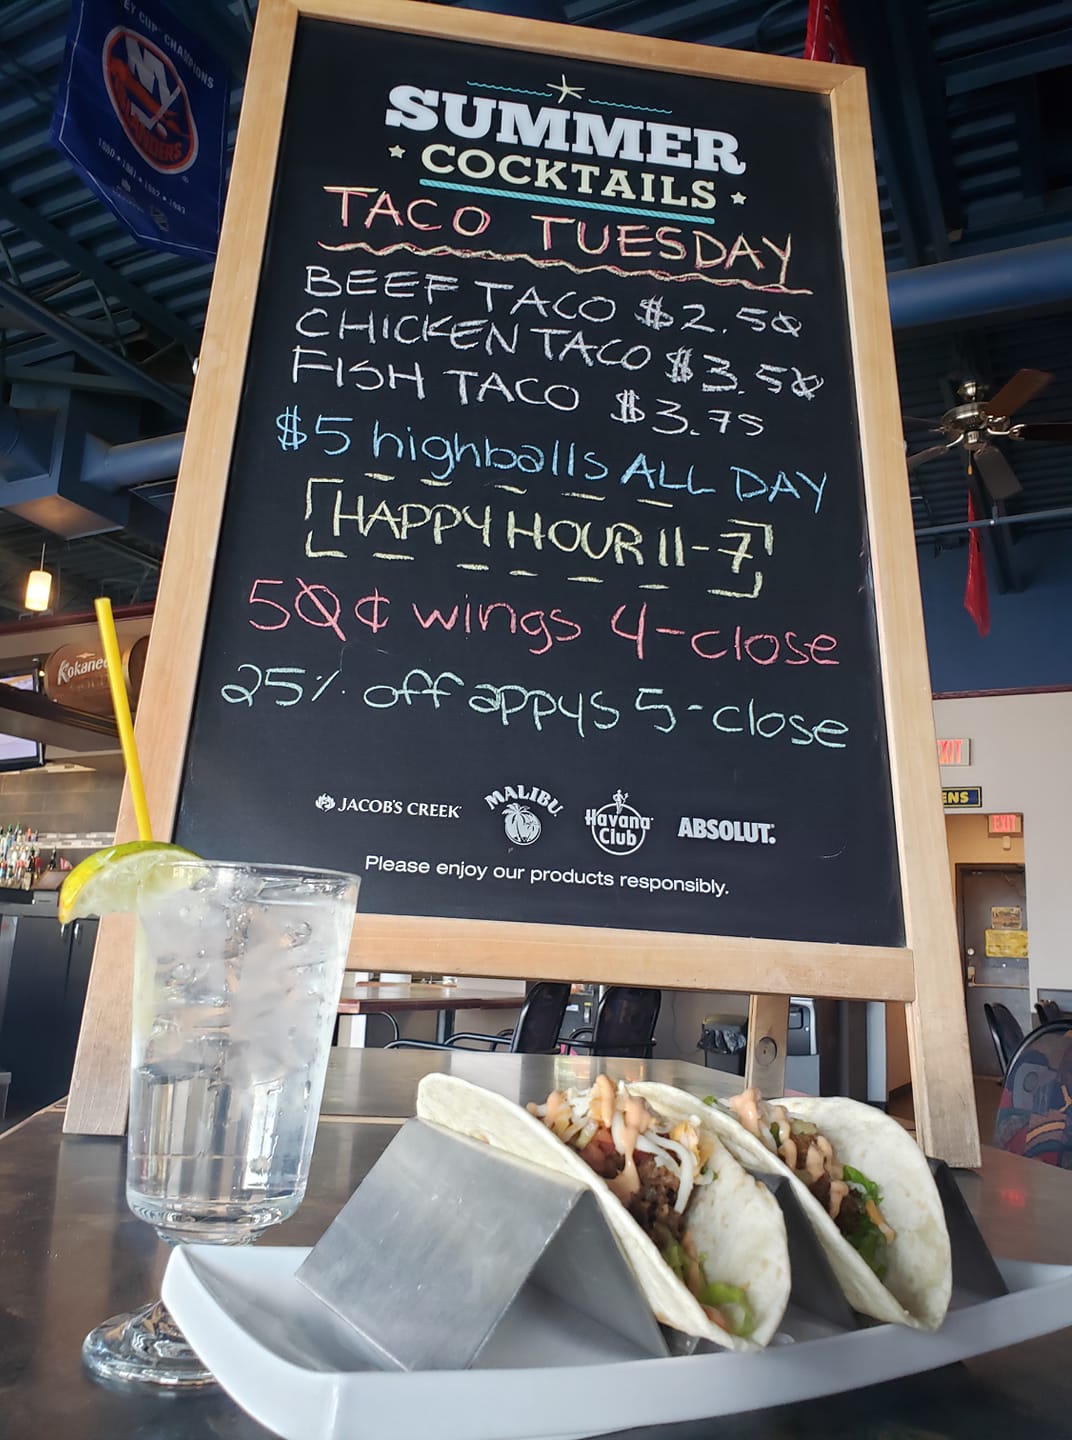 EY CUP CHAMPIONS
NY
ISLANDERS
1980 • 1981 • 1982 • 1983
SUMMER
COCKTAILS
TACO TUESDAY
BEEF TACO $2.50
CHICKEN TACO $3.50
FISH TACO $3.75
$5 highballs ALL DAY
HAPPY HOUR 11-7
50¢ wings 4-close
25% off appys 5-close
JACOB'S CREEK
MALIBU
Havana
Club
ABSOLUT.
Please enjoy our products responsibly.
Kokanee
EXIT
ENS
EXIT